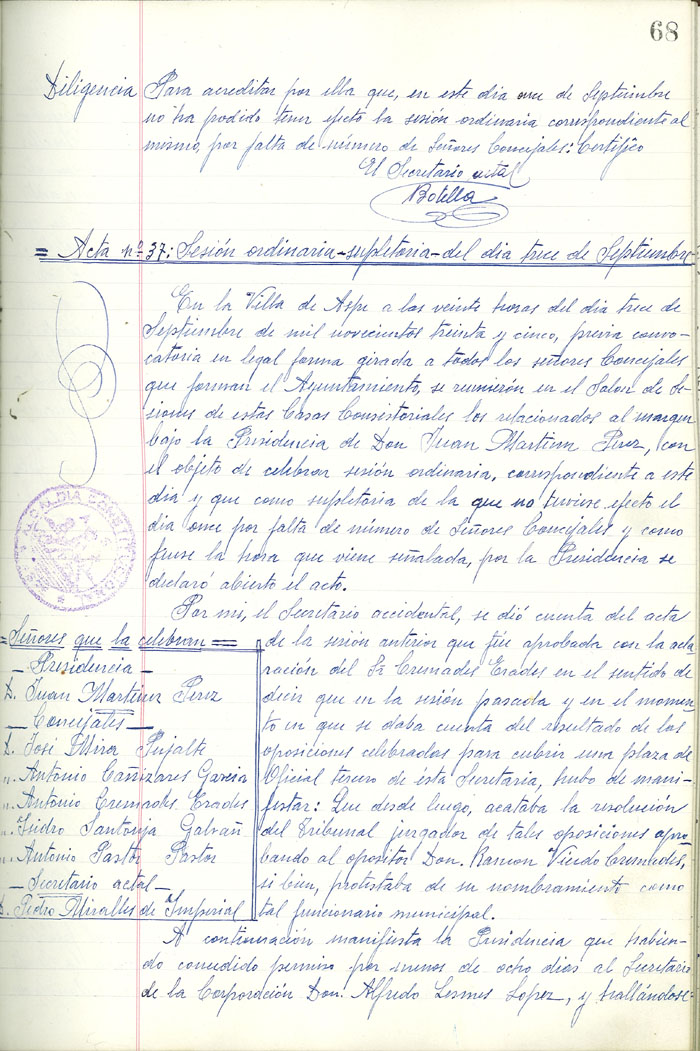 68
Diligencia Para acreditar por ella que, en este dia once de Septiembre
no ha podido tener efecto la sesión ordinaria correspondiente al
mismo, por falta de número de Señores Concejales: Certifico
El Secretario actal
Botella
= Acta nº 37: Sesión ordinaria-supletoria-del dia trece de Septiembre
En la Villa de Aspe a las veinte horas del dia trece de
Septiembre de mil novecientos treinta y cinco, previa convo-
catoria en legal forma girada a todos los señores Concejales
que forman el Ayuntamiento, se reunierón en el Salon de Se-
siones de estas Casas Consistoriales los relacionados al margen
bajo la Presidencia de Don Juan Martinez Perez, con
el objeto de celebrar sesión ordinaria, correspondiente a este
dia y que como supletoria de la que no tuviese efecto el
día once por falta de número de Señores Concejales y como
fuese la hora que viene señalada, por la Presidencia se
declaró abierto el acto.
ALCALDIA CONSTITUCIONAL
Por mi, el Secretario accidental, se dió cuenta del acta
de la sesión anterior que fué aprobada con la acla-
ración del Sr Cremades Erades en el sentido de
decir que en la sesión pasada y en el momen-
to en que se daba cuenta del resultado de las
oposiciones celebradas para cubrir una plaza de
Oficial tercero de esta Secretaria, hubo de mani-
festar: Que desde luego, acataba la resolución
del Tribunal juzgador de tales oposiciones apro-
bando al opositor Don. Ramon Viedo Cremades,
si bien, protestaba de su nombramiento como
tal funcionario municipal.
= Señores que la celebran =
- Presidencia -
D. Juan Martinez Perez
- Concejales -
D. José Mira Pujalte
". Antonio Cañizares Garcia
". Antonio Cremades Erades
". Isidro Santonja Galvañ
". Antonio Pastor Pastor
- Secretario actal -
D. Pedro Miralles de Imperial
A continuación manifiesta la Presidencia que habien-
do concedido permiso por menos de ocho dias al Secretario
de la Corporación Don. Alfredo Lesmes Lopez, y hallándose